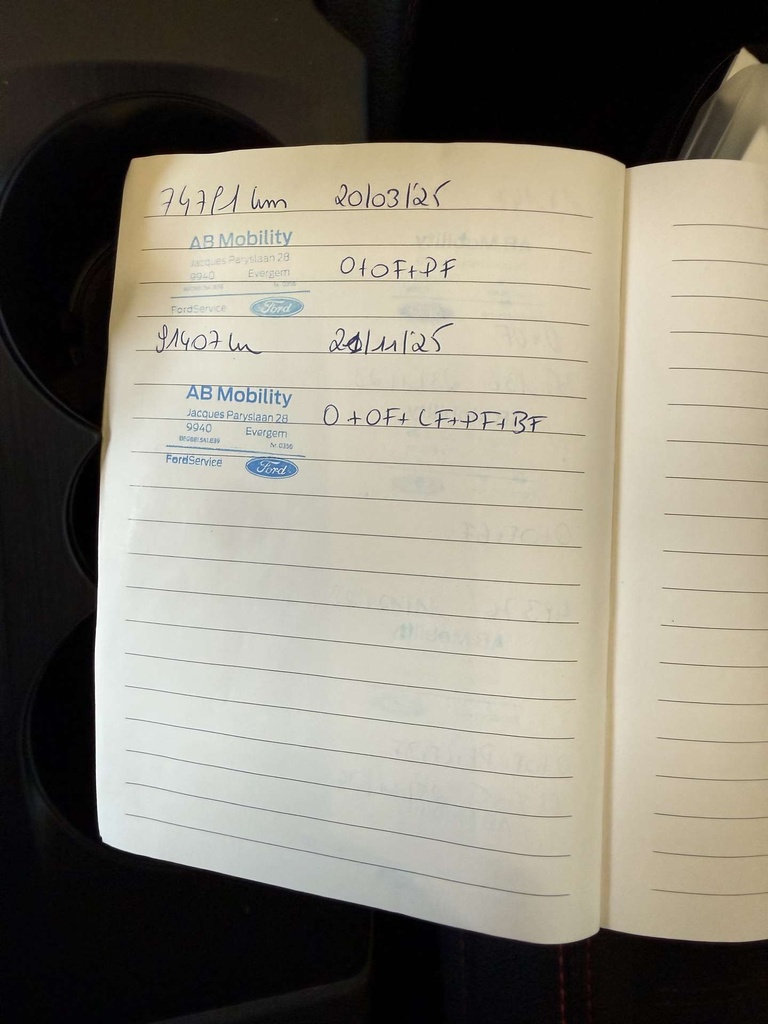 74791 km 20/03/25
AB Mobility
Jacques Parijslaan 28
9940 Evergem
FordService Ford
O+OF+PF
91407 km 21/11/25
AB Mobility
Jacques Parijslaan 28
9940 Evergem
FordService Ford
O+OF+LF+PF+BF